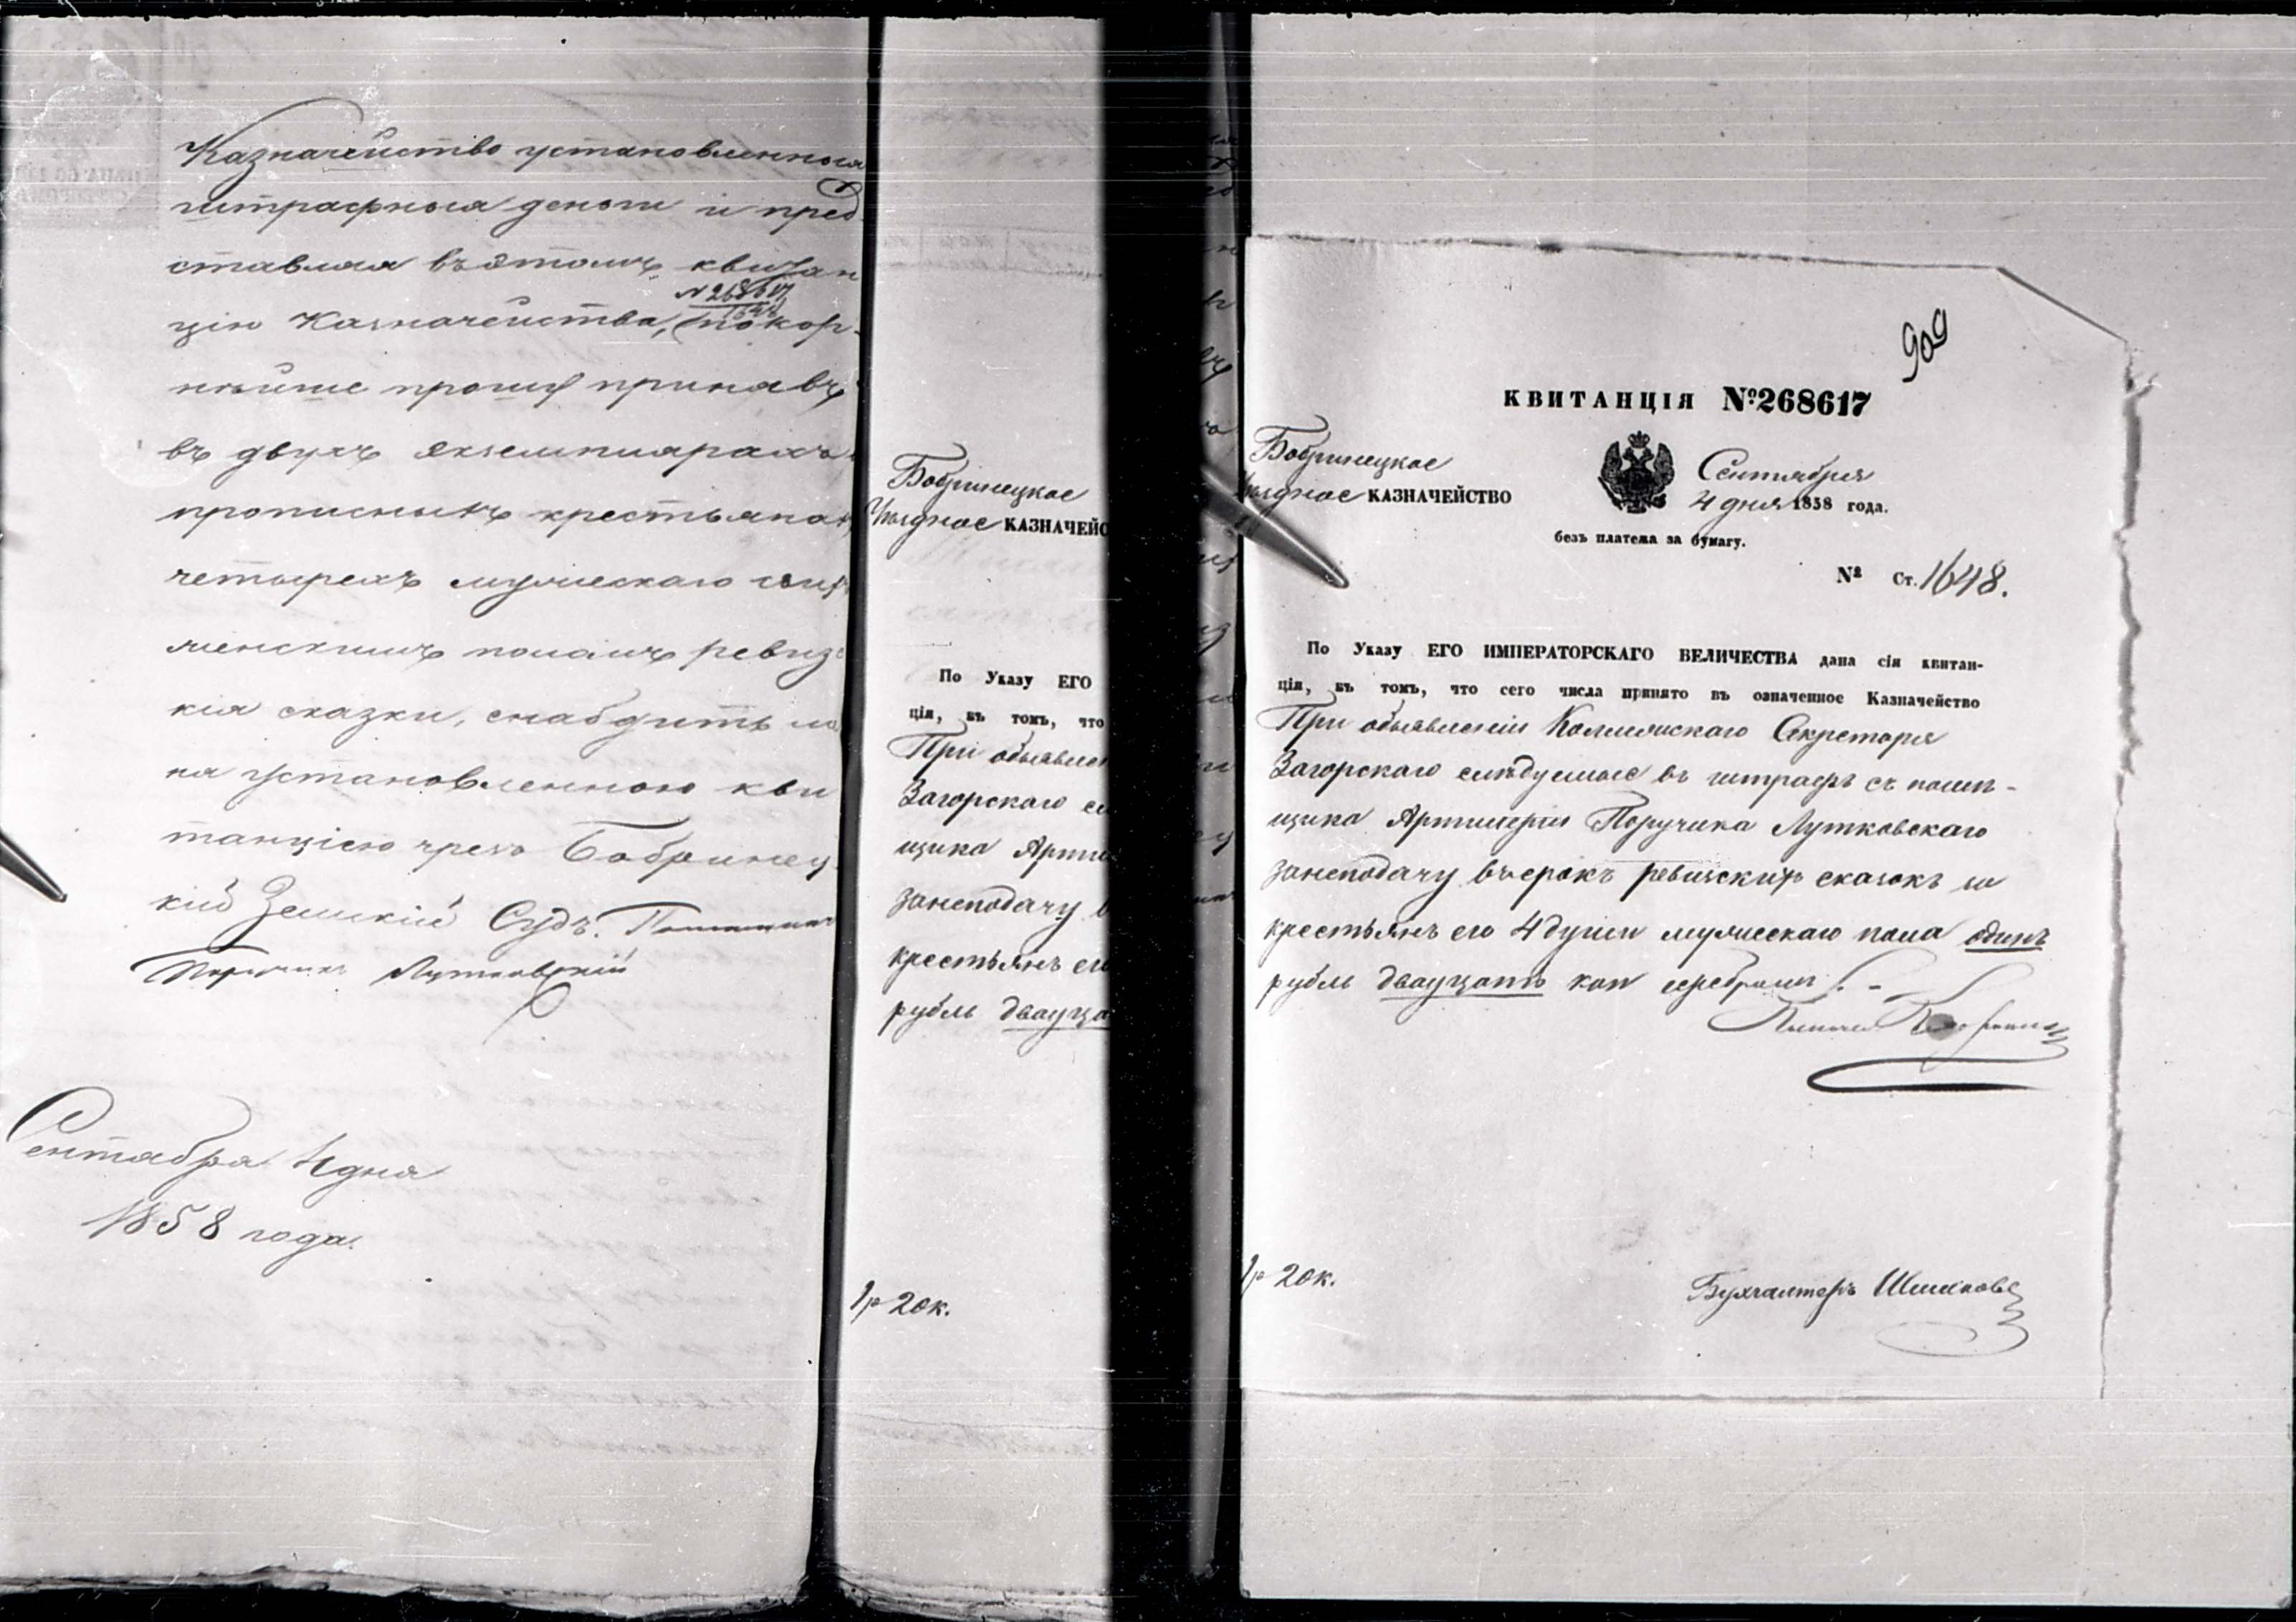 Казначейство установленныя
штрафныя деньги и пред
ставляя въ этомъ квитан
N 268617
1648
цію Казначейства, покор-
нѣйше прошу принявъ
въ двухъ экземплярахъ
прописнымъ крестьянам
четырехъ мужескаго и
женскимъ поламъ ревиз
кія сказки, снабдить ме
ня установленною кви
танціею чрезъ Бобринец
кій Земскій Судъ.
Поручикъ Лутковскій
Сентября 4 дня
1858 года.
Бобринецкое
Уѣздное КАЗНАЧЕЙС
По Указу ЕГО
ція, въ томъ, что
При объявлен
Загорскаго сл
щика Арти
занеподачу в
крестьянъ ег
рубль двадца
1 р 20 к.
909
КВИТАНЦІЯ №268617
Бобринецкое
Уѣздное КАЗНАЧЕЙСТВО
Сентября
4 дня 1858 года.
безъ платежа за бумагу.
№ Ст. 1648.
По Указу ЕГО ИМПЕРАТОРСКАГО ВЕЛИЧЕСТВА дана сія квитан-
ція, въ томъ, что сего числа принято въ означенное Казначейство
При объявленіи Коллежскаго Секретаря
Загорскаго слѣдуемые въ штрафъ съ помѣ-
щика Артилеріи Поручика Лутковскаго
занеподачу въ срокъ ревизскихъ сказокъ о
крестьянъ его 4 души мужескаго пола одинъ
рубль двадцать коп серебромъ
1 р 20 к.
Бухгалтеръ Шишковъ